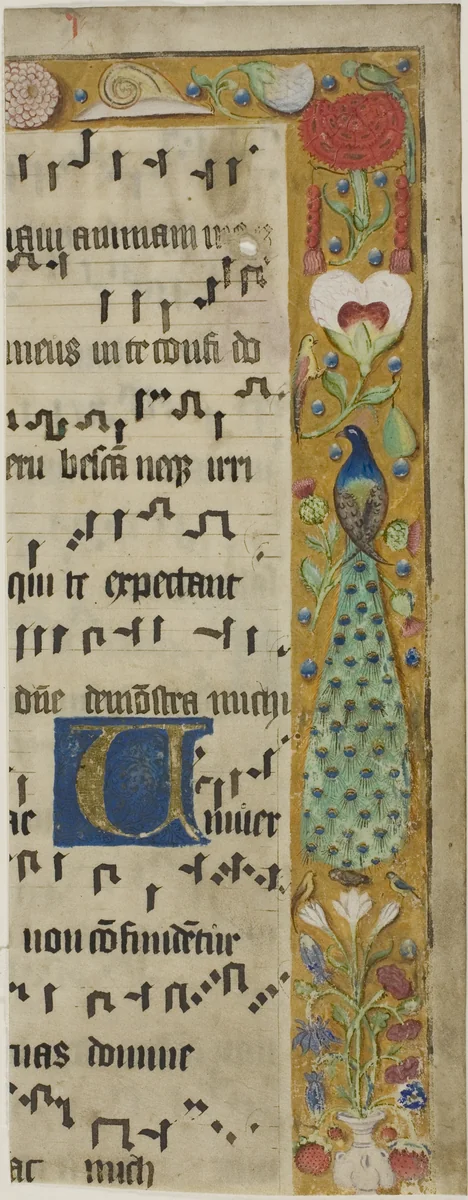 uaui animam
meus in te confi do
eru bescā neqꝫ irri
qui te expectant
dn̄e demōstra michi
ac Uniuer
non cōfundētur
uas domine
ac mich